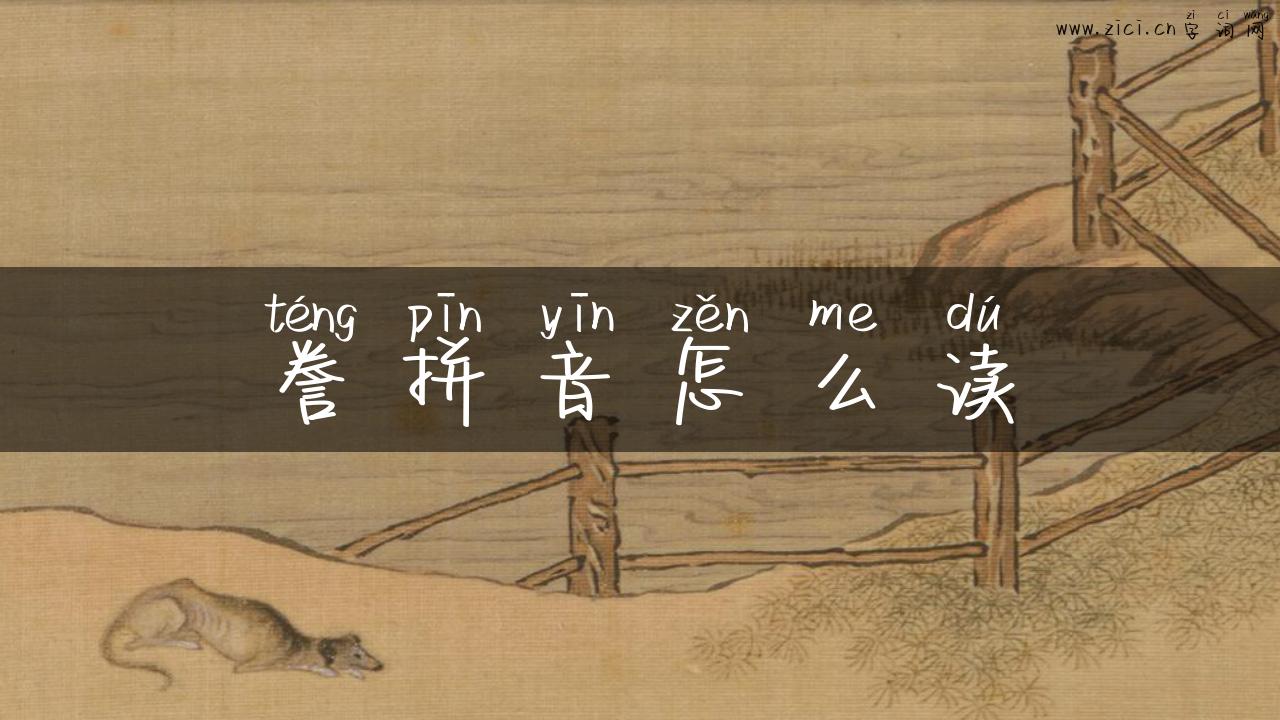 zi ci wang
www.zici.cn 字词网
téng pīn yīn zěn me dú
誊拼音怎么读